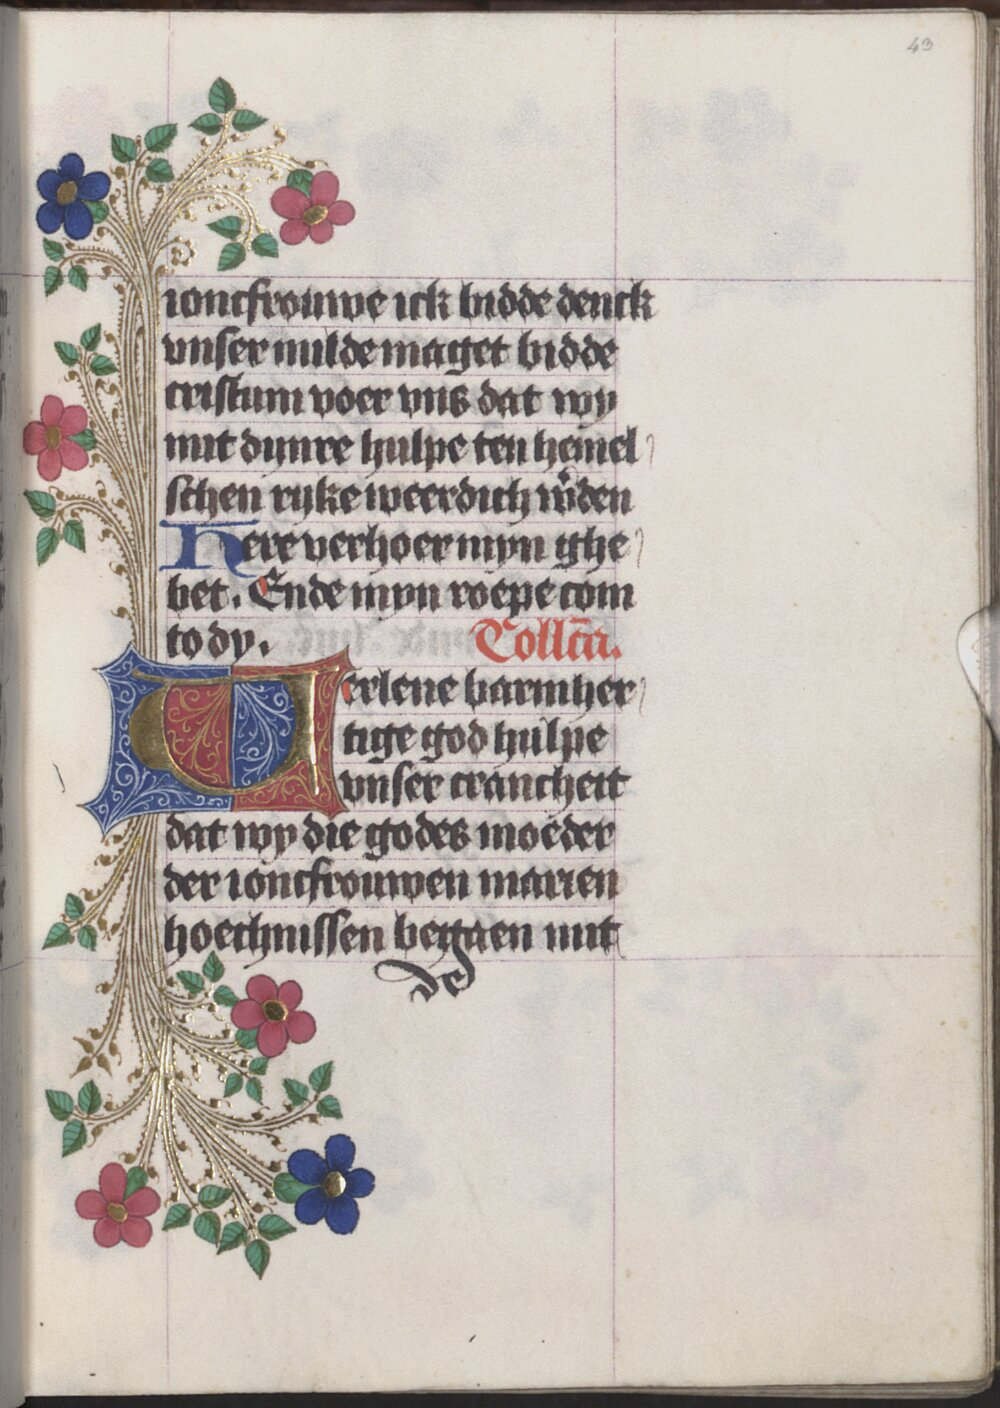 43
ioncfrouwe ick bidde denck
vnser milde maget bidde
cristum voer vns dat wy
mit dynre hulpe ten hemel
schen ryke weerdich w̾den
Here verhoer myn ghe
bet. Ende myn roepe com
to dy. Collc̄a.
Verlene barmher
tige god hulpe
vnser crancheit
dat wy die godes moeder
der ioncfrouwen marien
hoechnissen begaen mit
de